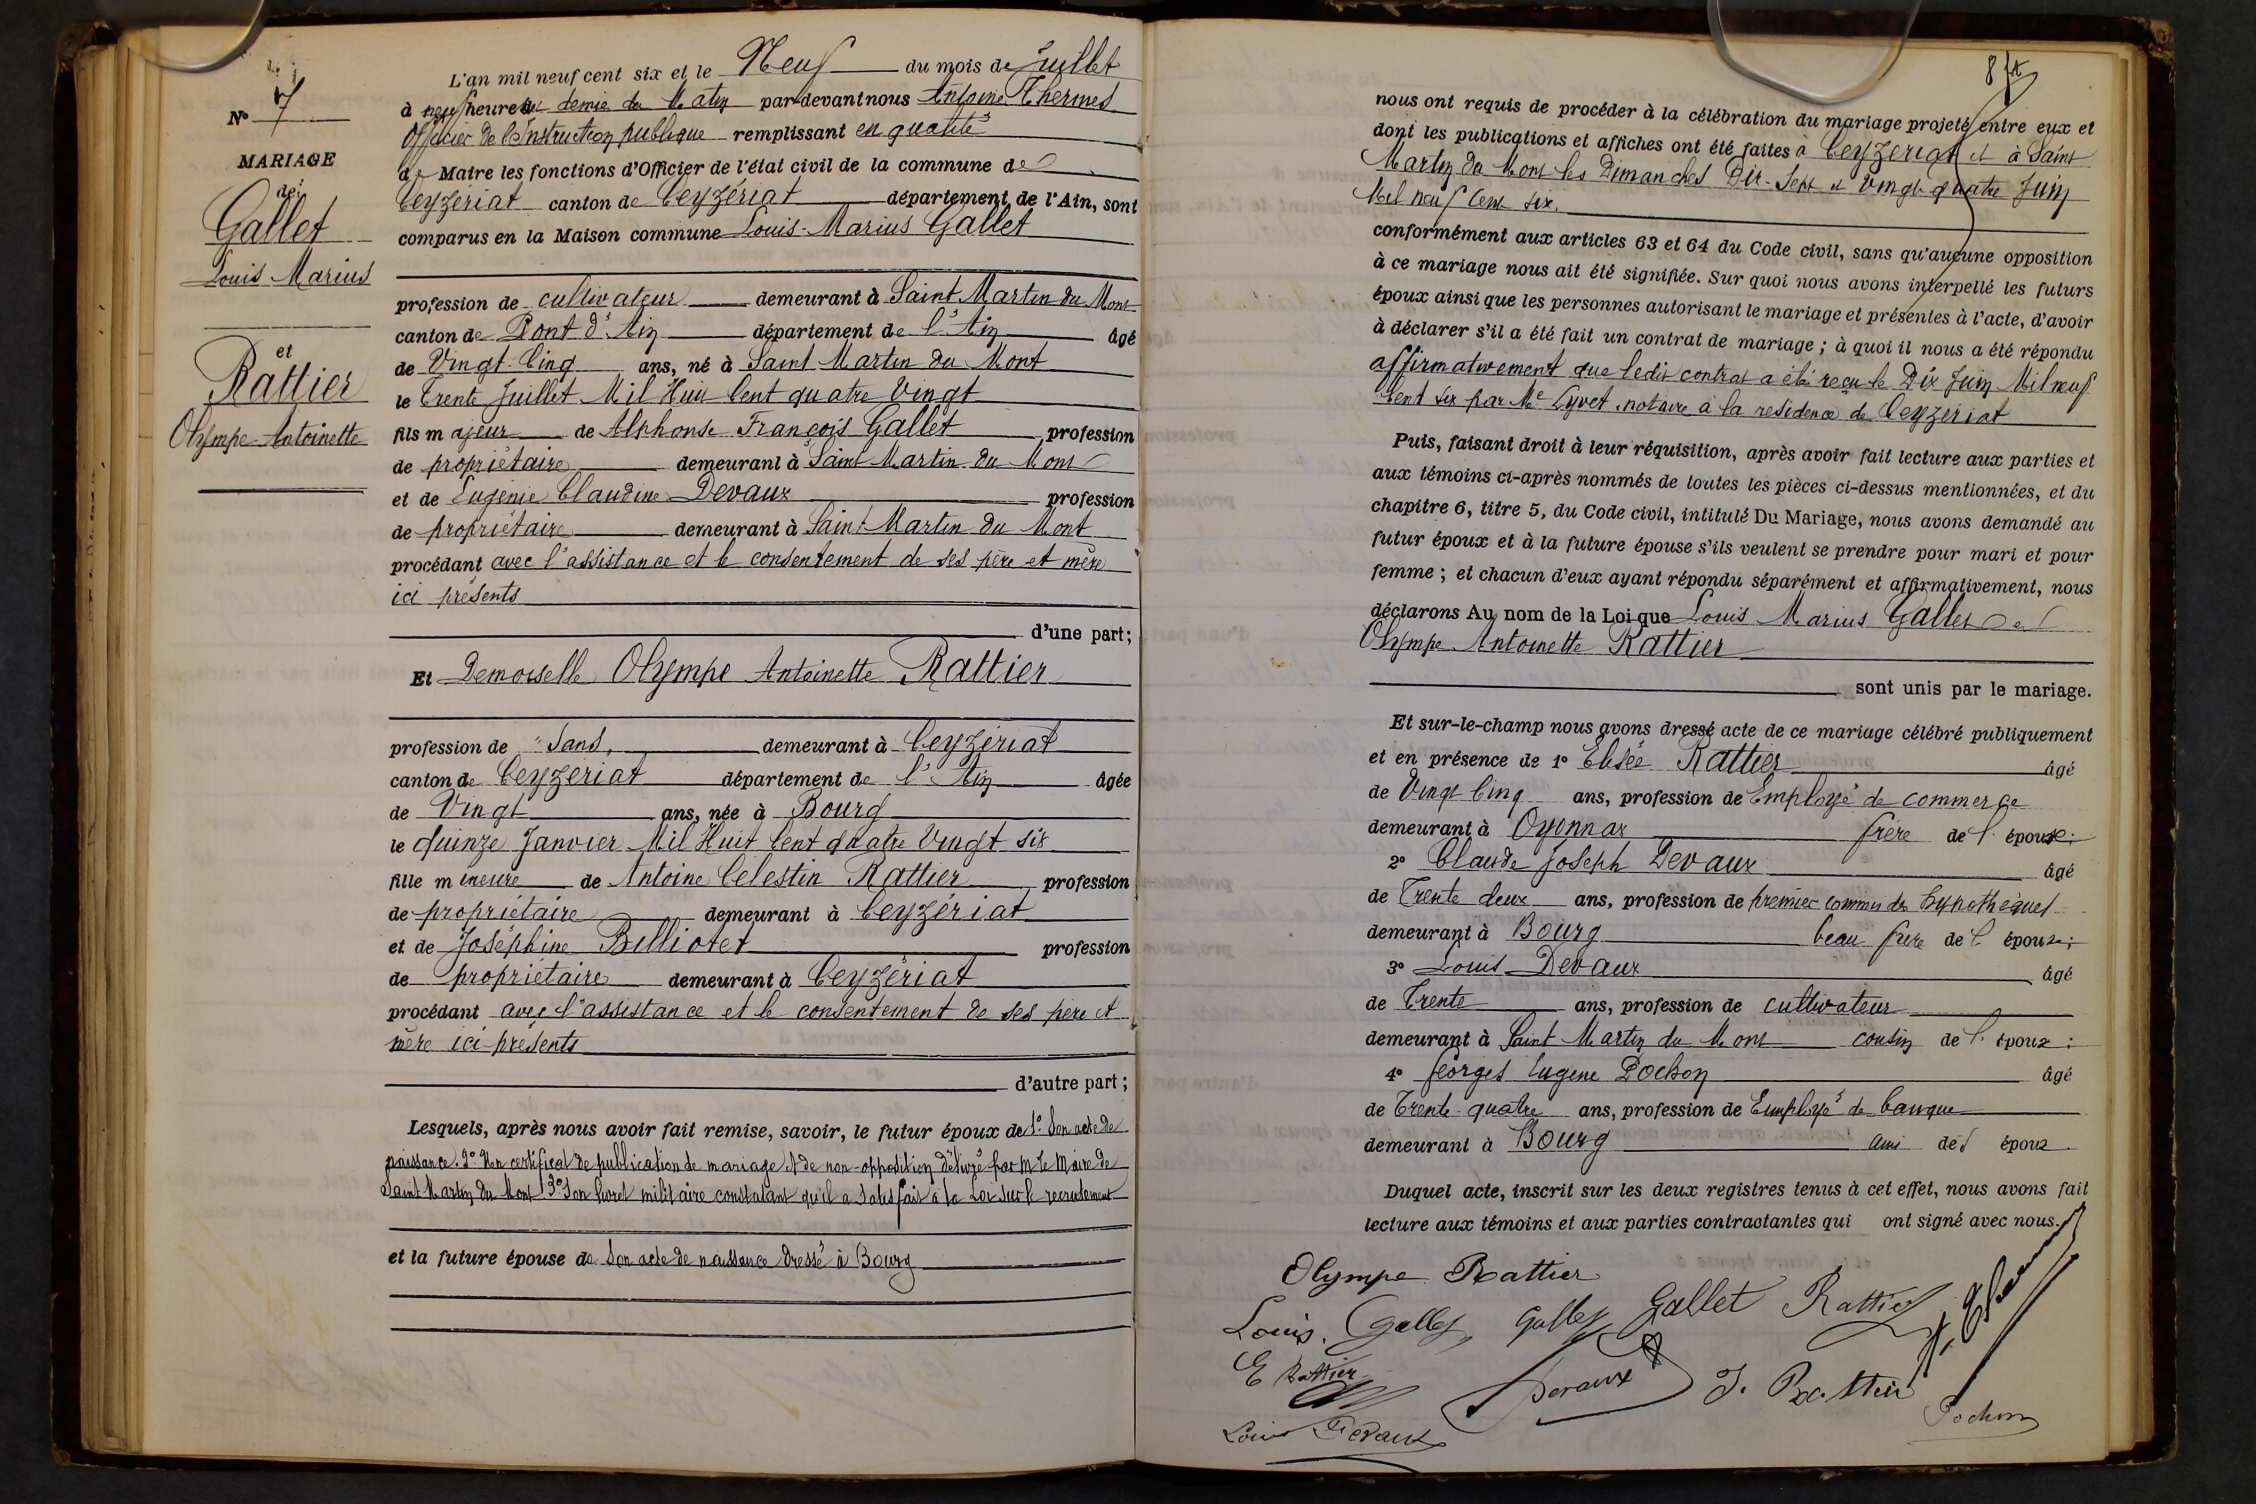 N° 7
MARIAGE
de
Gallet
Louis Marius
et
Rattier
Olympe Antoinette
L'an mil neuf cent six et le Neuf du mois de Juillet
à neuf heures et demie du Matin par-devant nous Antoine Thermes
Officier de l'Instruction publique remplissant en qualité
de Maire les fonctions d'Officier de l'état civil de la commune de
Ceyzériat canton de Ceyzériat département de l'Ain, sont
comparus en la Maison commune Louis-Marius Gallet
profession de cultivateur demeurant à Saint Martin du Mont
canton de Pont d'Ain département de l'Ain âgé
de Vingt Cinq ans, né à Saint Martin du Mont
le Trente Juillet Mil Huit Cent quatre Vingt
fils majeur de Alphonse François Gallet profession
de propriétaire demeurant à Saint Martin du Mont
et de Eugénie Claudine Devaux profession
de propriétaire demeurant à Saint Martin du Mont
procédant avec l'assistance et le consentement de ses père et mère
ici présents
d'une part;
Et Demoiselle Olympe Antoinette Rattier
profession de Sans demeurant à Ceyzériat
canton de Ceyzériat département de l'Ain âgée
de Vingt ans, née à Bourg
le quinze Janvier Mil Huit Cent quatre Vingt six
fille mineure de Antoine Célestin Rattier profession
de propriétaire demeurant à Ceyzériat
et de Joséphine Billiotet profession
de propriétaire demeurant à Ceyzériat
procédant avec l'assistance et le consentement de ses père et
mère ici présents
d'autre part;
Lesquels, après nous avoir fait remise, savoir, le futur époux de 1° Son acte de
naissance. 2° Un certificat de publication de mariage et de non-opposition délivré par M le Maire de
Saint Martin du Mont 3° Son livret militaire constatant qu'il a satisfait à la Loi sur le recrutement
et la future épouse de Son acte de naissance dressé à Bourg
8
nous ont requis de procéder à la célébration du mariage projeté entre eux et
dont les publications et affiches ont été faites à Ceyzériat et à Saint
Martin du Mont les Dimanches Dix-Sept et Vingt-quatre Juin
Mil neuf Cent six.
conformément aux articles 63 et 64 du Code civil, sans qu'aucune opposition
à ce mariage nous ait été signifiée. Sur quoi nous avons interpellé les futurs
époux ainsi que les personnes autorisant le mariage et présentes à l'acte, d'avoir
à déclarer s'il a été fait un contrat de mariage ; à quoi il nous a été répondu
affirmativement que ledit contrat a été reçu le Dix Juin Mil neuf
Cent six par Me Lyvet, notaire à la résidence de Ceyzériat
Puis, faisant droit à leur réquisition, après avoir fait lecture aux parties et
aux témoins ci-après nommés de toutes les pièces ci-dessus mentionnées, et du
chapitre 6, titre 5, du Code civil, intitulé Du Mariage, nous avons demandé au
futur époux et à la future épouse s'ils veulent se prendre pour mari et pour
femme ; et chacun d'eux ayant répondu séparément et affirmativement, nous
déclarons Au nom de la Loi que Louis Marius Gallet et
Olympe Antoinette Rattier
sont unis par le mariage.
Et sur-le-champ nous avons dressé acte de ce mariage célébré publiquement
et en présence de 1° Elisée Rattier âgé
de Vingt Cinq ans, profession de Employé de commerce
demeurant à Oyonnax frère de l' épouse;
2° Claude Joseph Devaux âgé
de Trente deux ans, profession de premier commis des hypothèques
demeurant à Bourg beau frère de l' époux;
3° Louis Devaux âgé
de Trente ans, profession de cultivateur
demeurant à Saint Martin du Mont cousin de l' époux;
4° Georges Eugène Pochon âgé
de Trente-quatre ans, profession de Employé de banque
demeurant à Bourg ami des époux
Duquel acte, inscrit sur les deux registres tenus à cet effet, nous avons fait
lecture aux témoins et aux parties contractantes qui ont signé avec nous.
Olympe Rattier
Louis Gallet Gallet Gallet Rattier
E Rattier Devaux J. Rattier
Louis Devaux Pochon